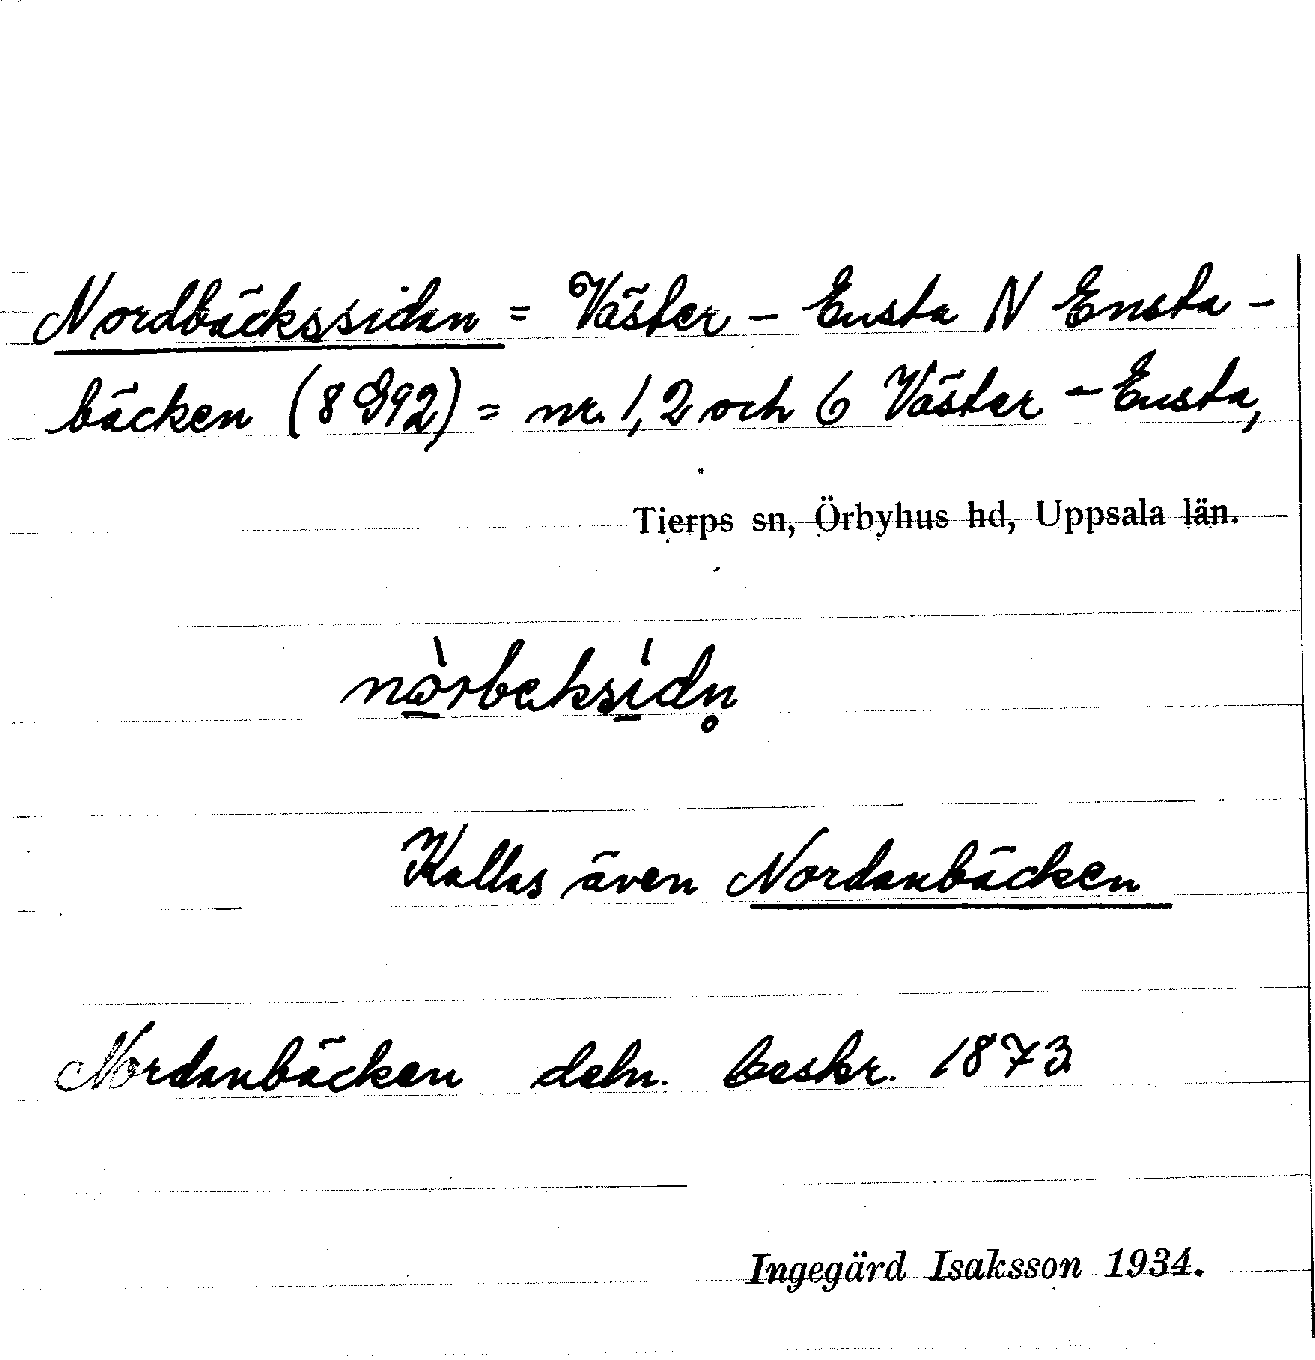 Nordbäckssidan = Väster - Ensta N Ensta-
bäcken (8 G92) = nr. 1, 2 och 6 Väster - Ensta,
Tierps sn, Örbyhus hd, Uppsala län.
nò̠rbeksí̠dn̥
Kallas även Nordanbäcken
Nordanbäcken deln. beskr. 1873
Ingegärd Isaksson 1934.